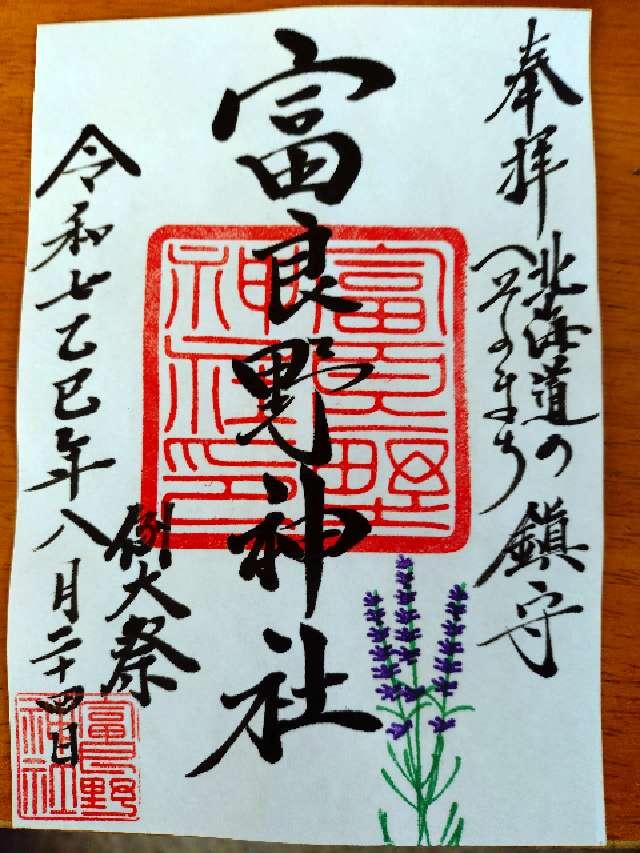 奉拝
北海道の
へそのまち
鎮守
富良野神社
富良野神社印
例大祭
令和七乙巳年八月二十四日
富良野神社